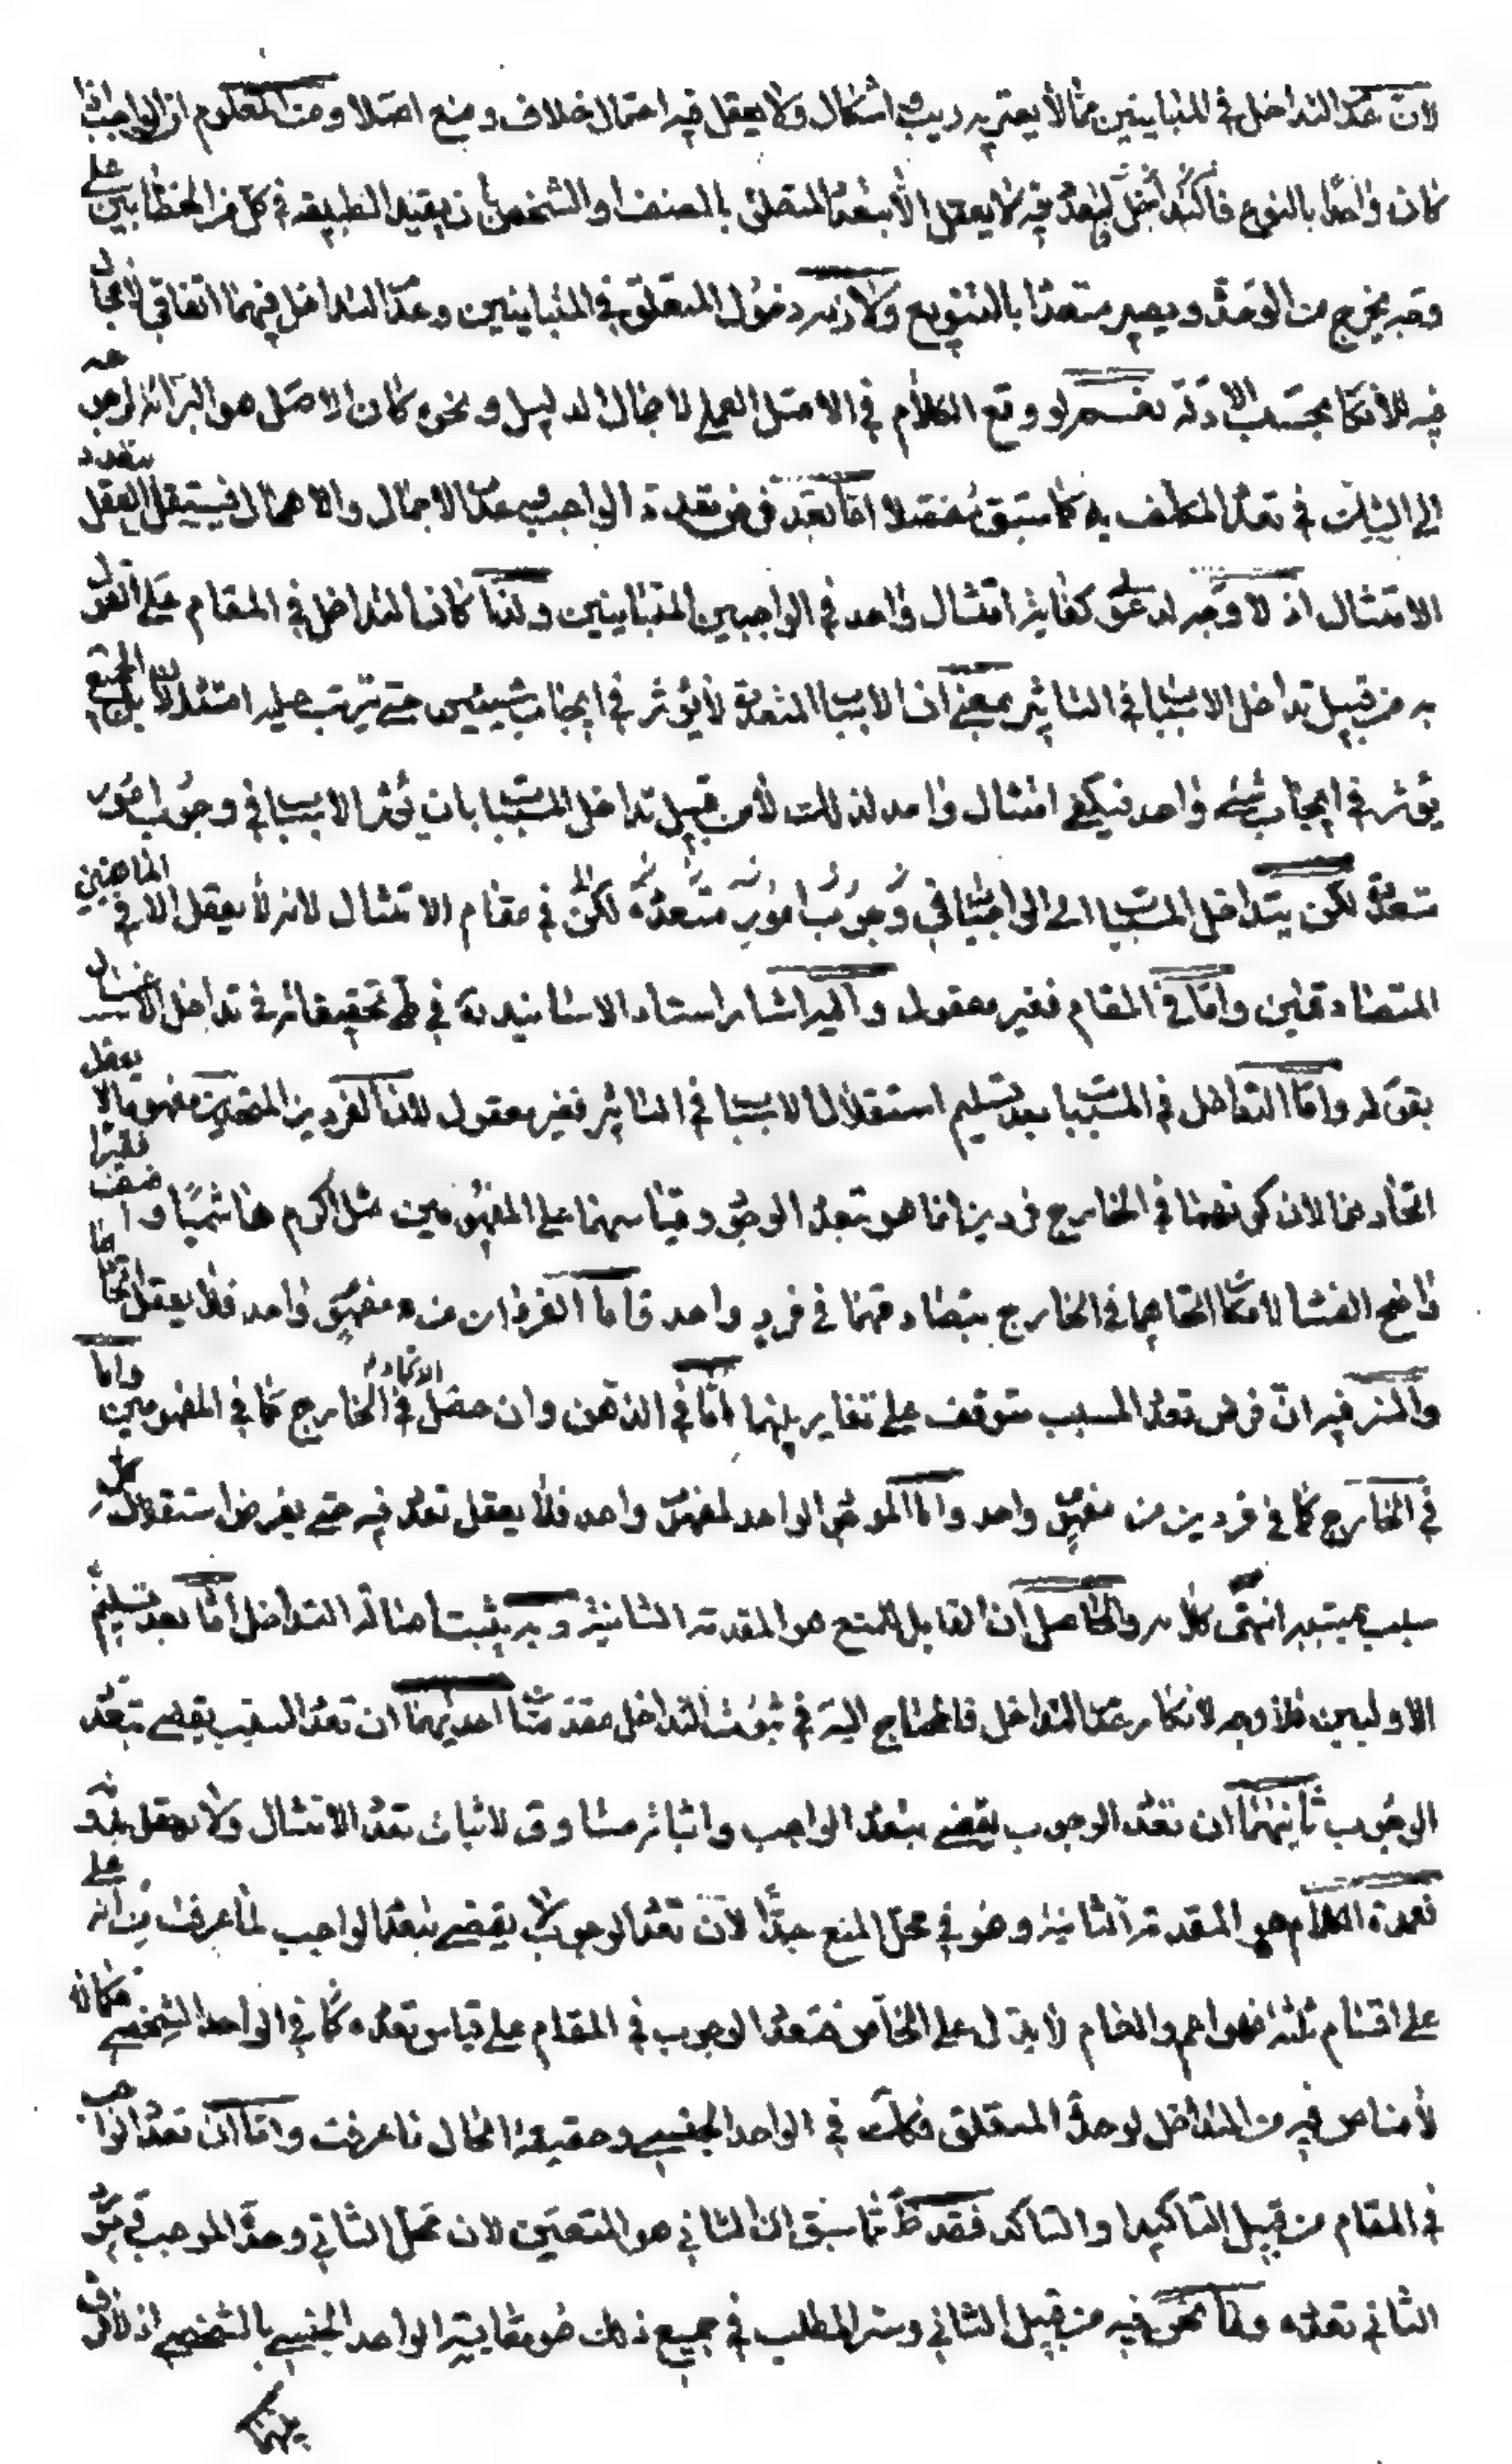 لان عدم التداخل في المتباينين مما لا يعتريه ريب واشكال ولا يعقل فيه احتمال خلاف ومنع اصلا ومن المعلوم ان الواجب اذا
كان واحدا بالنوع فالتعدد فيه لا يعقل الا بتعدد المتعلق بالصنف او الشخص بان يقيد الطبيعة في كل من الخطابين على
وجه يخرج من الوحدة ويصير متعددا بالتنويع ولازمه دخول المتعلق في المتباينين وعدم التداخل فيهما اتفاقي لا مجال
فيه للانكار بحسب الادلة نعم لو وقع الكلام في الاصل العملي لاجمال الدليل ونحوه كان الاصل هو البرائة لرجوعه
الى الشك في تعدد المكلف به كما سبق مفصلا اما بعد فرض تعدد الواجب وعدم الاجمال والاهمال فيستقل العقل بتعدد
الامتثال اذ لا وجه لدعوى كفاية امتثال واحد في الواجبين المتباينين ولذا كان التداخل في المقام على القول
به من قبيل تداخل الاسباب في التاثير بمعنى ان الاسباب المتعددة لا يؤثر في ايجاب شيئين حتى يترتب عليه امتثالان بل الجميع
يؤثر في ايجاب شيء واحد فيكفي امتثال واحد لذلك لا من قبيل تداخل المسببات بان يؤثر الاسباب في وجوب امور
متعددة لكن يتداخل المسببات اي الواجبات في وجوب امور متعددة لكن في مقام الامتثال لانه لا يعقل الا في الماهيتين
المتصادقتين واما في المقام فغير معقول واليه اشار استاد الاساتيد في طي تحقيقاته في تداخل الاغسال
بقوله واما التداخل في المسببات بعد تسليم استقلال الاسباب في التاثير فغير معقول لان الفردين المتحدين مفهوما لا يعقل
اتحادهما لان كونهما في الخارج فردين انما هو بتعدد الوجود وقياسهما على المفهومين مثل اكرم هاشميا واضف فقيرا
واضح الفساد لامكان اتحادهما في الخارج بتصادقهما في فرد واحد فاما الفردان من مفهوم واحد فلا يعقل اتحادهما
والسر فيه ان فرض تعدد المسبب متوقف على تغاير بينهما اما في الذهن وان حصل الاتحاد في الخارج كما في المفهومين واما
في الخارج كما في فردين من مفهوم واحد واما الموجود الواحد لمفهوم واحد فلا يعقل تعدد فيه حتى يفرض استقلال كل
سبب بمسببه انتهى كلامه والحاصل ان القابل للمنع هو المقدمة الثانية وبه يثبت اصالة التداخل اما بعد تسليم
الاوليين فلا وجه لانكار عدم التداخل فالمحتاج اليه في ثبوت التداخل مقدمتان احديهما ان تعدد السبب يقضي بتعدد
الوجوب ثانيتهما ان تعدد الوجوب يقضي بتعدد الواجب واثباته مساوق لاثبات تعدد الامتثال ولا يعقل بدونه
فعمدة الكلام هو المقدمة الثانية وهو في محل المنع جدا لان تعدد الوجوب لا يقضي بتعدد الواجب لما عرفت من انه على
على اقسام ثلثة فهو اعم والعام لا يدل على الخاص فتعدد الوجوب في المقام على قياس تعدده كما في الواحد الشخصي فكما انه
لا مناص فيه من التداخل لوحدة المتعلق فكك في الواحد الجنسي وحقيقة الحال ما عرفت واما ان تعدد الواجب
في المقام من قبيل التاكيد او التاكد فقد ظهر مما سبق ان الثاني هو المتعين لان محل الثاني وحدة الموجب في مورد
الثاني تعدده وما نحن فيه من قبيل الثاني وسر المطلب في جميع ذلك هو مقايسة الواحد الجنسي بالشخصي اذ لا فرق
بينهما